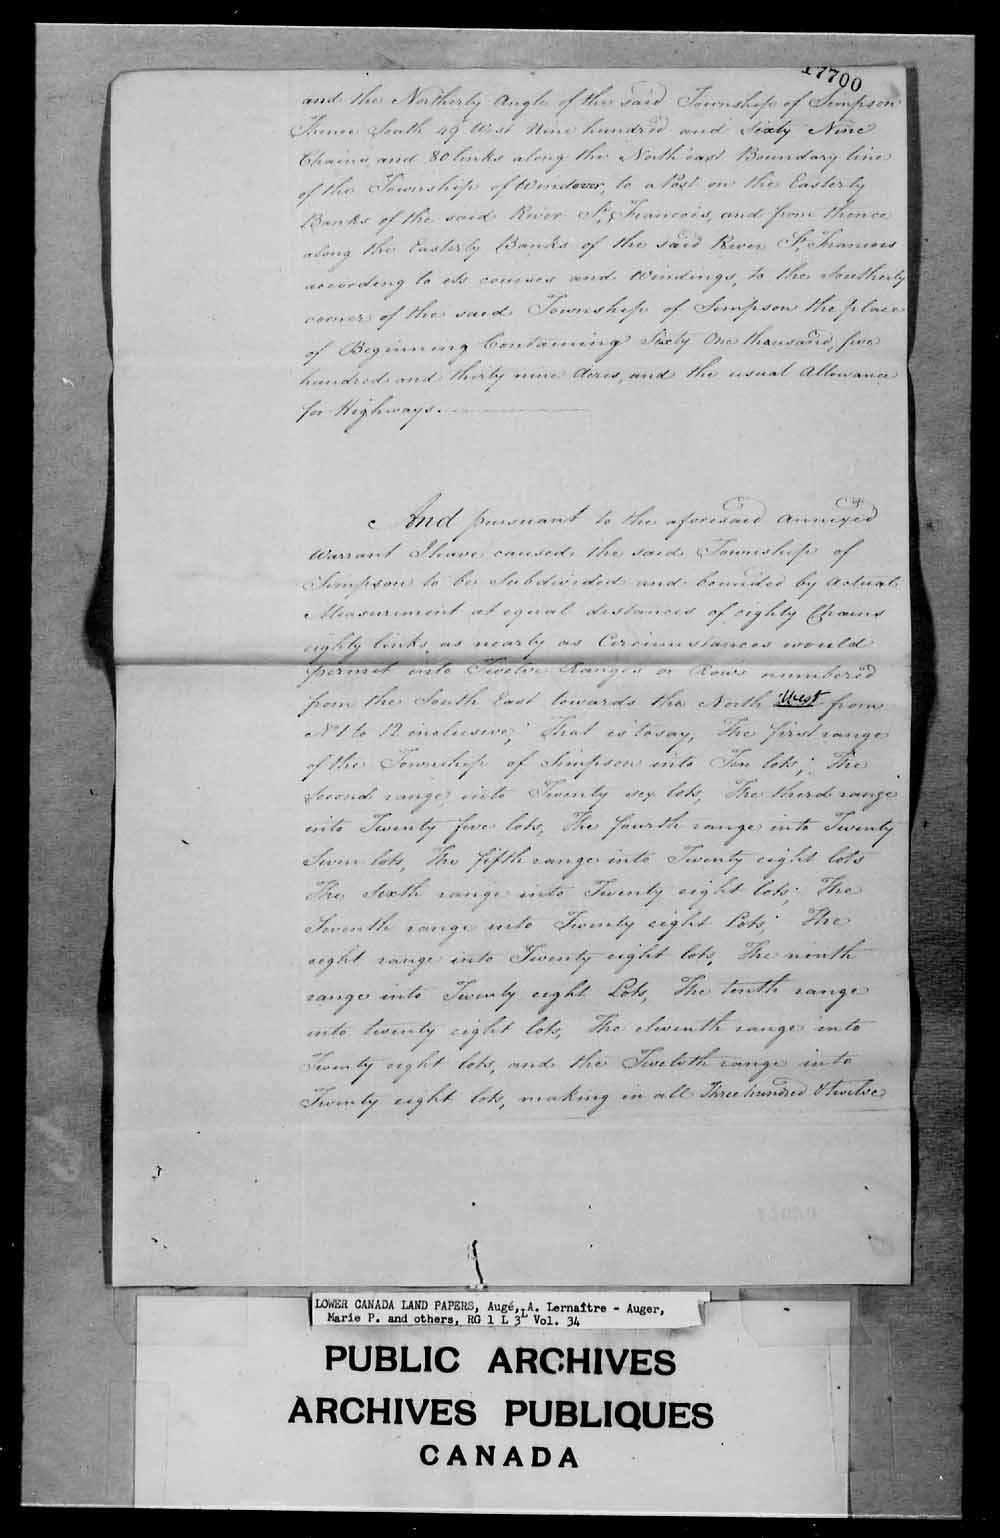 17700
and the Northerly Angle of the said Township of Simpson
Thence South 49° West Nine hundred and Sixty Nine
Chains and 80 links along the North east Boundary line
of the Township of Wendover, to a Post on the Easterly
Banks of the said River St. Francois, and from thence
along the Easterly Banks of the said River St. Francois
according to its courses and Windings, to the Southerly
corner of the said Township of Simpson the place
of Beginning Containing Sixty One thousand, five
hundred and thirty nine Acres, and the usual Allowance
for Highways.
And pursuant to the aforesaid annexed
Warrant I have caused the said Township of
Simpson to be Subdivided and bounded by Actual
Measurement at equal distances of eighty Chains
eighty links, as nearly as Circumstances would
permit into Twelve Ranges or Rows numbered
from the South East towards the North West from
No. 1 to 12 inclusive; That is to say, The first range
of the Township of Simpson into Ten lots; The
Second range into Twenty six lots, The third range
into Twenty five lots, The fourth range into Twenty
Seven lots, The fifth range into Twenty eight lots
The Sixth range into Twenty eight lots; The
Seventh range into Twenty eight Lots; The
eight range into Twenty eight lots, The ninth
range into Twenty eight Lots, The tenth range
into twenty eight lots, The eleventh range into
Twenty eight lots, and the Twelvth range into
Twenty eight lots, making in all Three hundred & twelve
LOWER CANADA LAND PAPERS, Augé, A. Lernaître - Auger,
Marie P. and others, RG 1 L 3L Vol. 34
PUBLIC ARCHIVES
ARCHIVES PUBLIQUES
CANADA